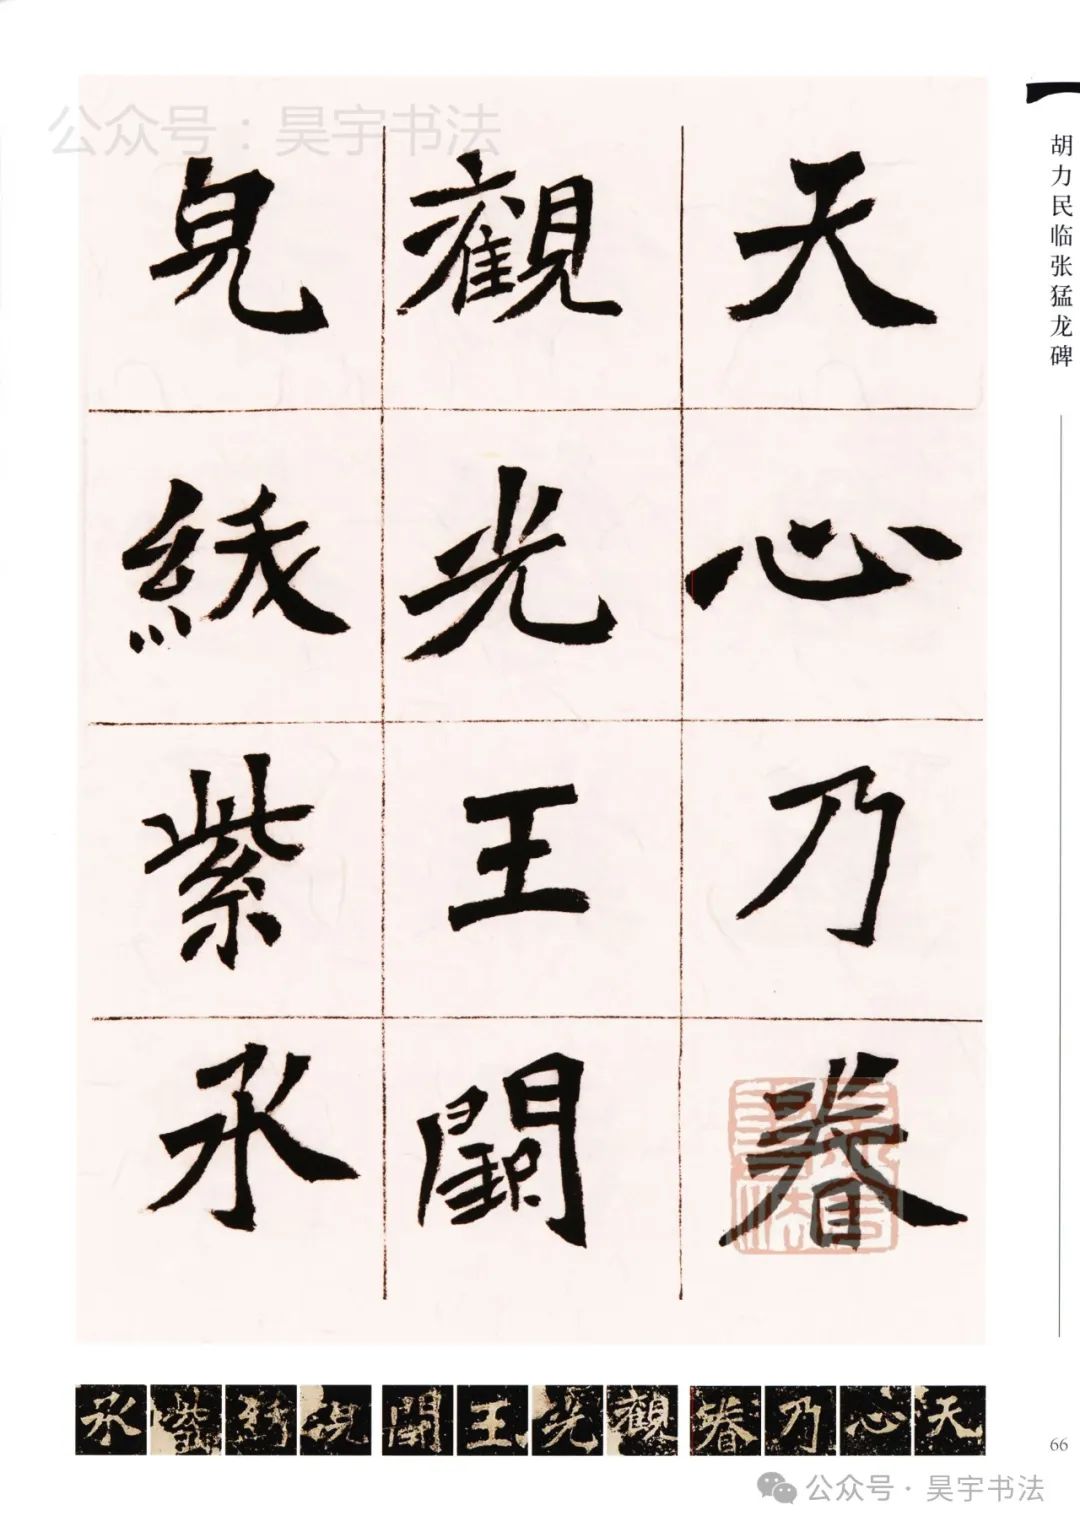 公众号：昊宇书法
胡力民临张猛龙碑
天心乃眷
觀光王闕
皃紱紫承
天心乃眷觀光王闕皃紱紫承
66
公众号·昊宇书法